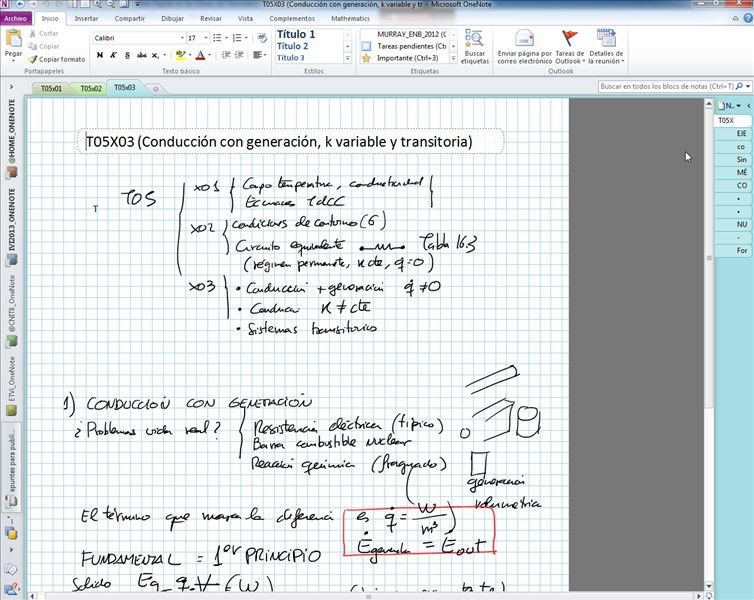 T05X03 (Conducción con generación, k variable y tr - Microsoft OneNote
Archivo Inicio Insertar Compartir Dibujar Revisar Vista Complementos Mathematics
Pegar
Cortar
Copiar
Copiar formato
Portapapeles
Calibri 17
N K S abc x₂
Texto básico
Título 1
Título 2
Título 3
Estilos
MURRAY_ENB_2012 (C
Tareas pendientes (Ctrl
Importante (Ctrl+3)
Etiquetas
Buscar etiquetas
Enviar página por correo electrónico
Tareas de Outlook
Detalles de la reunión
Outlook
T05x01 T05x02 T05x03
Buscar en todos los blocs de notas (Ctrl+T)
@HOME_ONENOTE
TYT2013_ONENOTE
@CNETB_OneNote
ETVI_OneNote
apuntes para publi
N..
T05X
EJE
co
Sin
MÉ
CO
NU
For
T05X03 (Conducción con generación, k variable y transitoria)
T05
X01 Campo temperatura, conductividad
Ecuaciones TdCC
X02 condiciones de contorno (6)
Circuito equivalente Tabla 16.3
(régimen permanente, k cte, q̇=0)
X03 • Conducción + generación q̇≠0
• Conducc K ≠ cte
• Sistemas transitorios
1) CONDUCCION CON GENERACIÓN
¿Problemas vida real? Resistencia eléctrica (típico)
Barra combustible nuclear
Reacción química (fraguado)
generación volumétrica
El término que marca la diferencia es q̇ = W/m³
Ėgenerada = Ėout
FUNDAMENTAL = 1er PRINCIPIO
Sólido